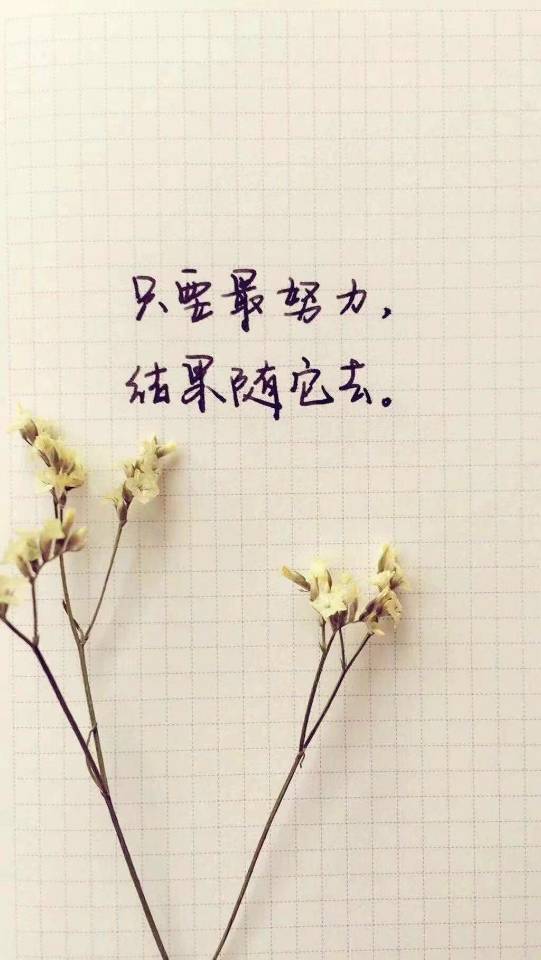 只要最努力，
结果随它去。